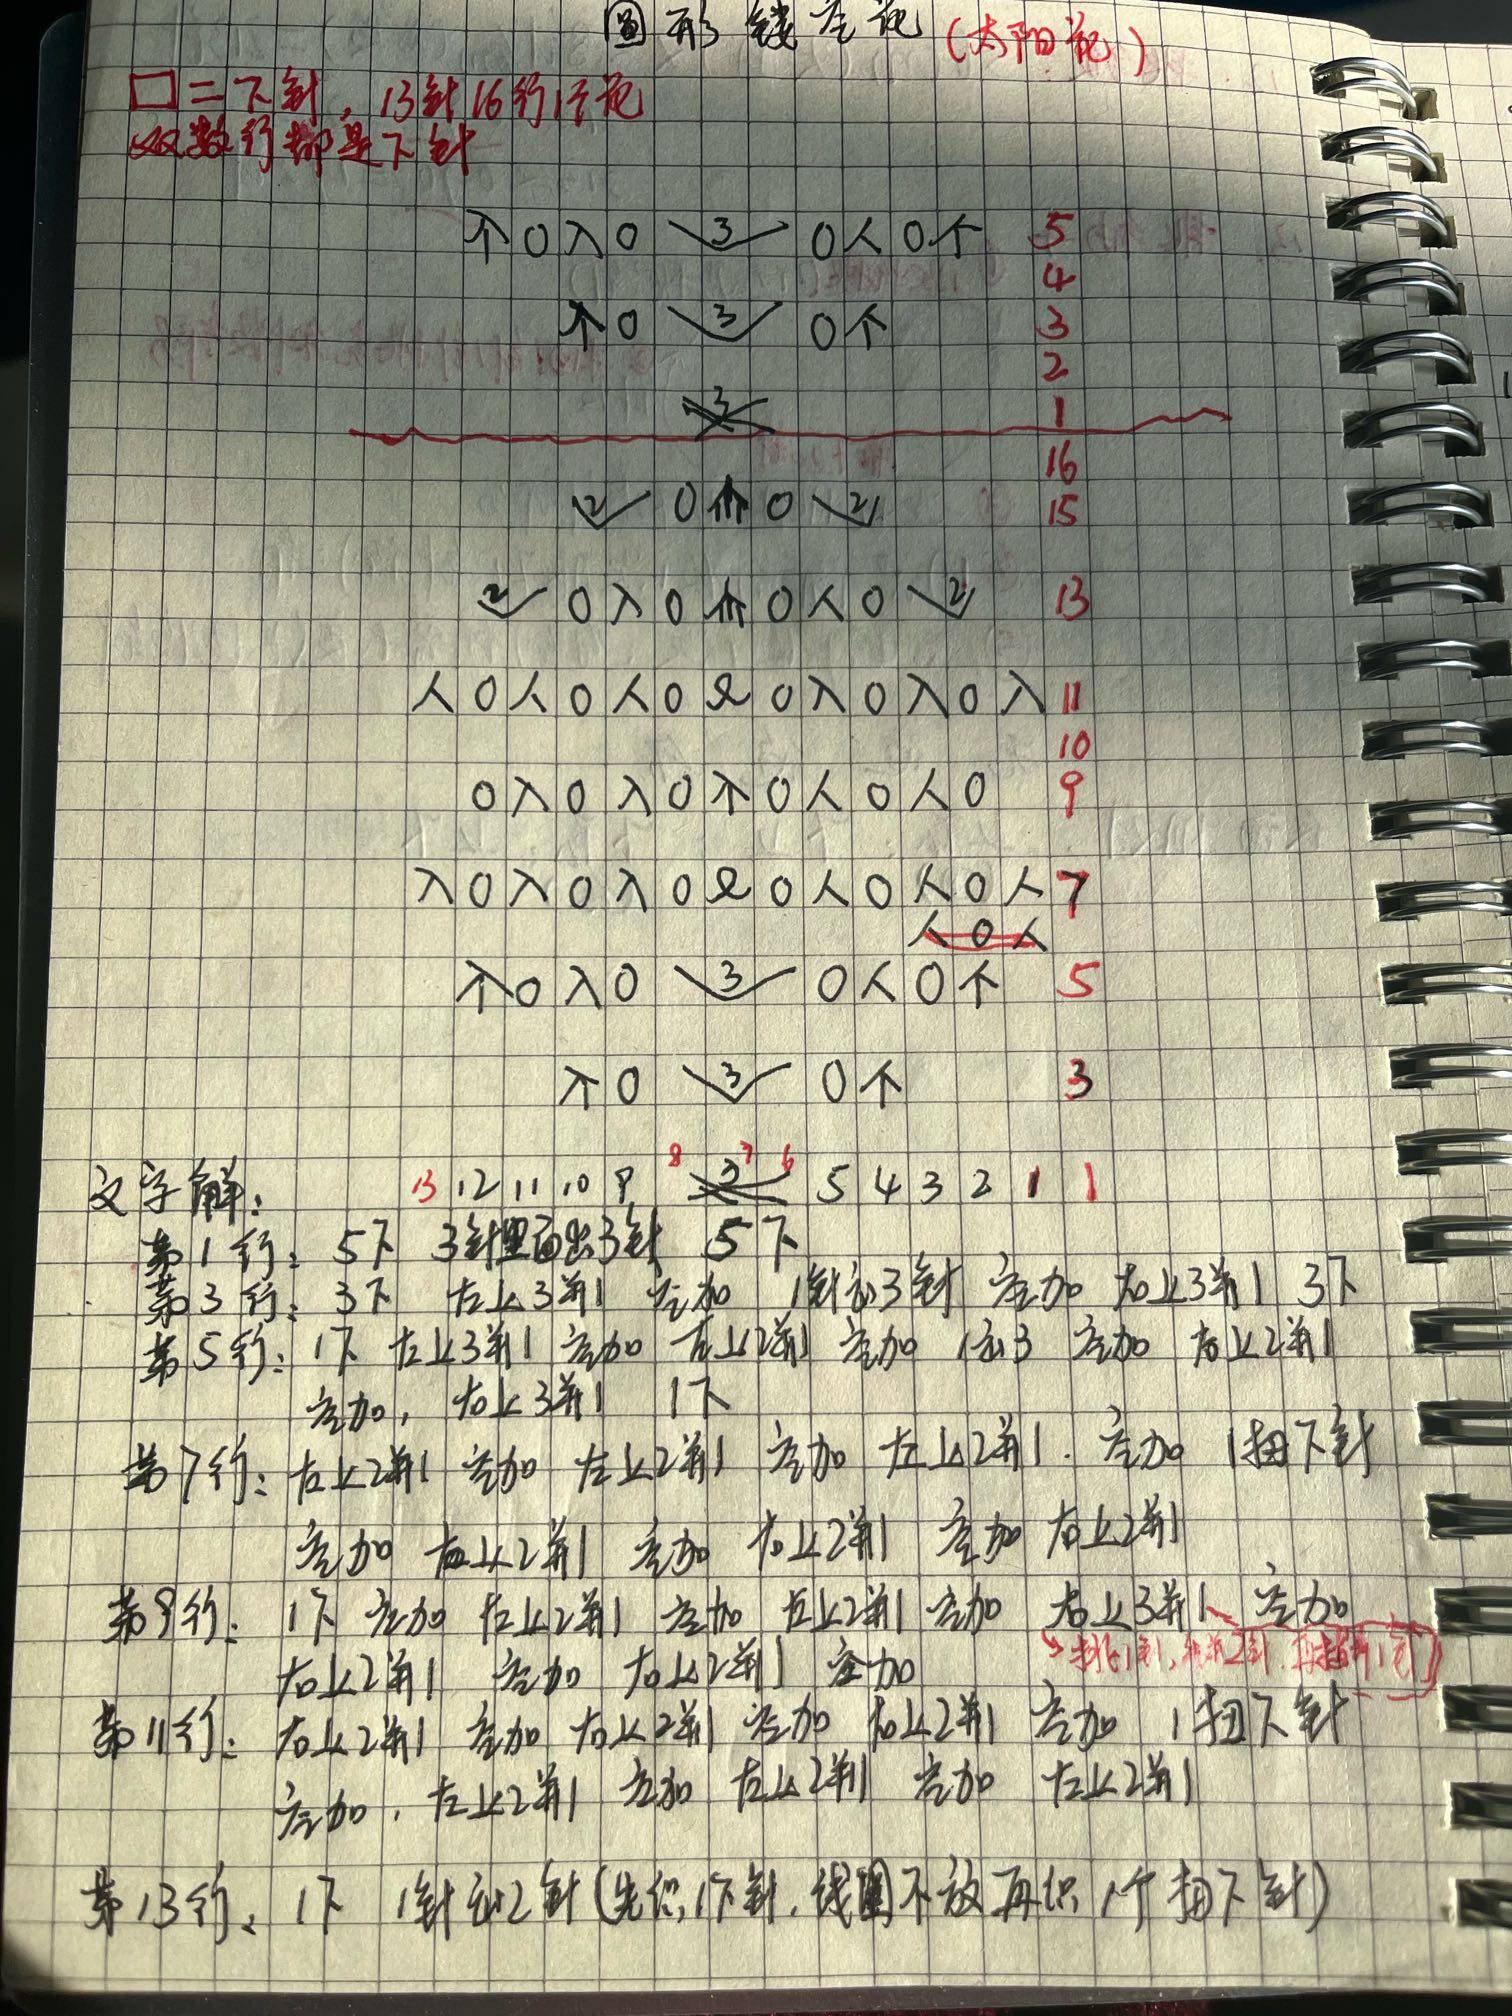 圆形镂空花(太阳花)
□=下针,13针16行1个花
双数行都是下针
个 O 入 O 3 O 人 O 个 5
4
个 O 3 O 个 3
2
3 1
16
2 O 个 O 2 15
2 O 入 O 个 O 人 O 2 13
人 O 人 O 人 O Ω O 入 O 入 O 入 11
10
O 入 O 入 O 个 O 人 O 人 O 9
入 O 入 O 入 O Ω O 人 O 人 O 人 7
人 O 人
个 O 入 O 3 O 人 O 个 5
个 O 3 O 个 3
文字解: 13 12 11 10 9 8 3 7 6 5 4 3 2 1 1
第1行: 5下 3针里面出3针 5下
第3行: 3下 左上3并1 空加 1针出3针 空加 右上3并1 3下
第5行: 1下 左上3并1 空加 左上2并1 空加 1出3 空加 右上2并1
空加, 右上3并1 1下
第7行: 左上2并1 空加 左上2并1 空加 左上2并1. 空加 1扭下针
空加 右上2并1 空加 右上2并1 空加 右上2并1
第9行: 1下 空加 左上2并1 空加 左上2并1 空加 右上3并1 空加
右上2并1 空加 右上2并1 空加
第11行: 右上2并1 空加 右上2并1 空加 右上2并1 空加 1扭下针
空加, 左上2并1 空加 左上2并1 空加 左上2并1
第13行: 1下 1针出2针(先织1下针,线圈不放再织1个扭下针)